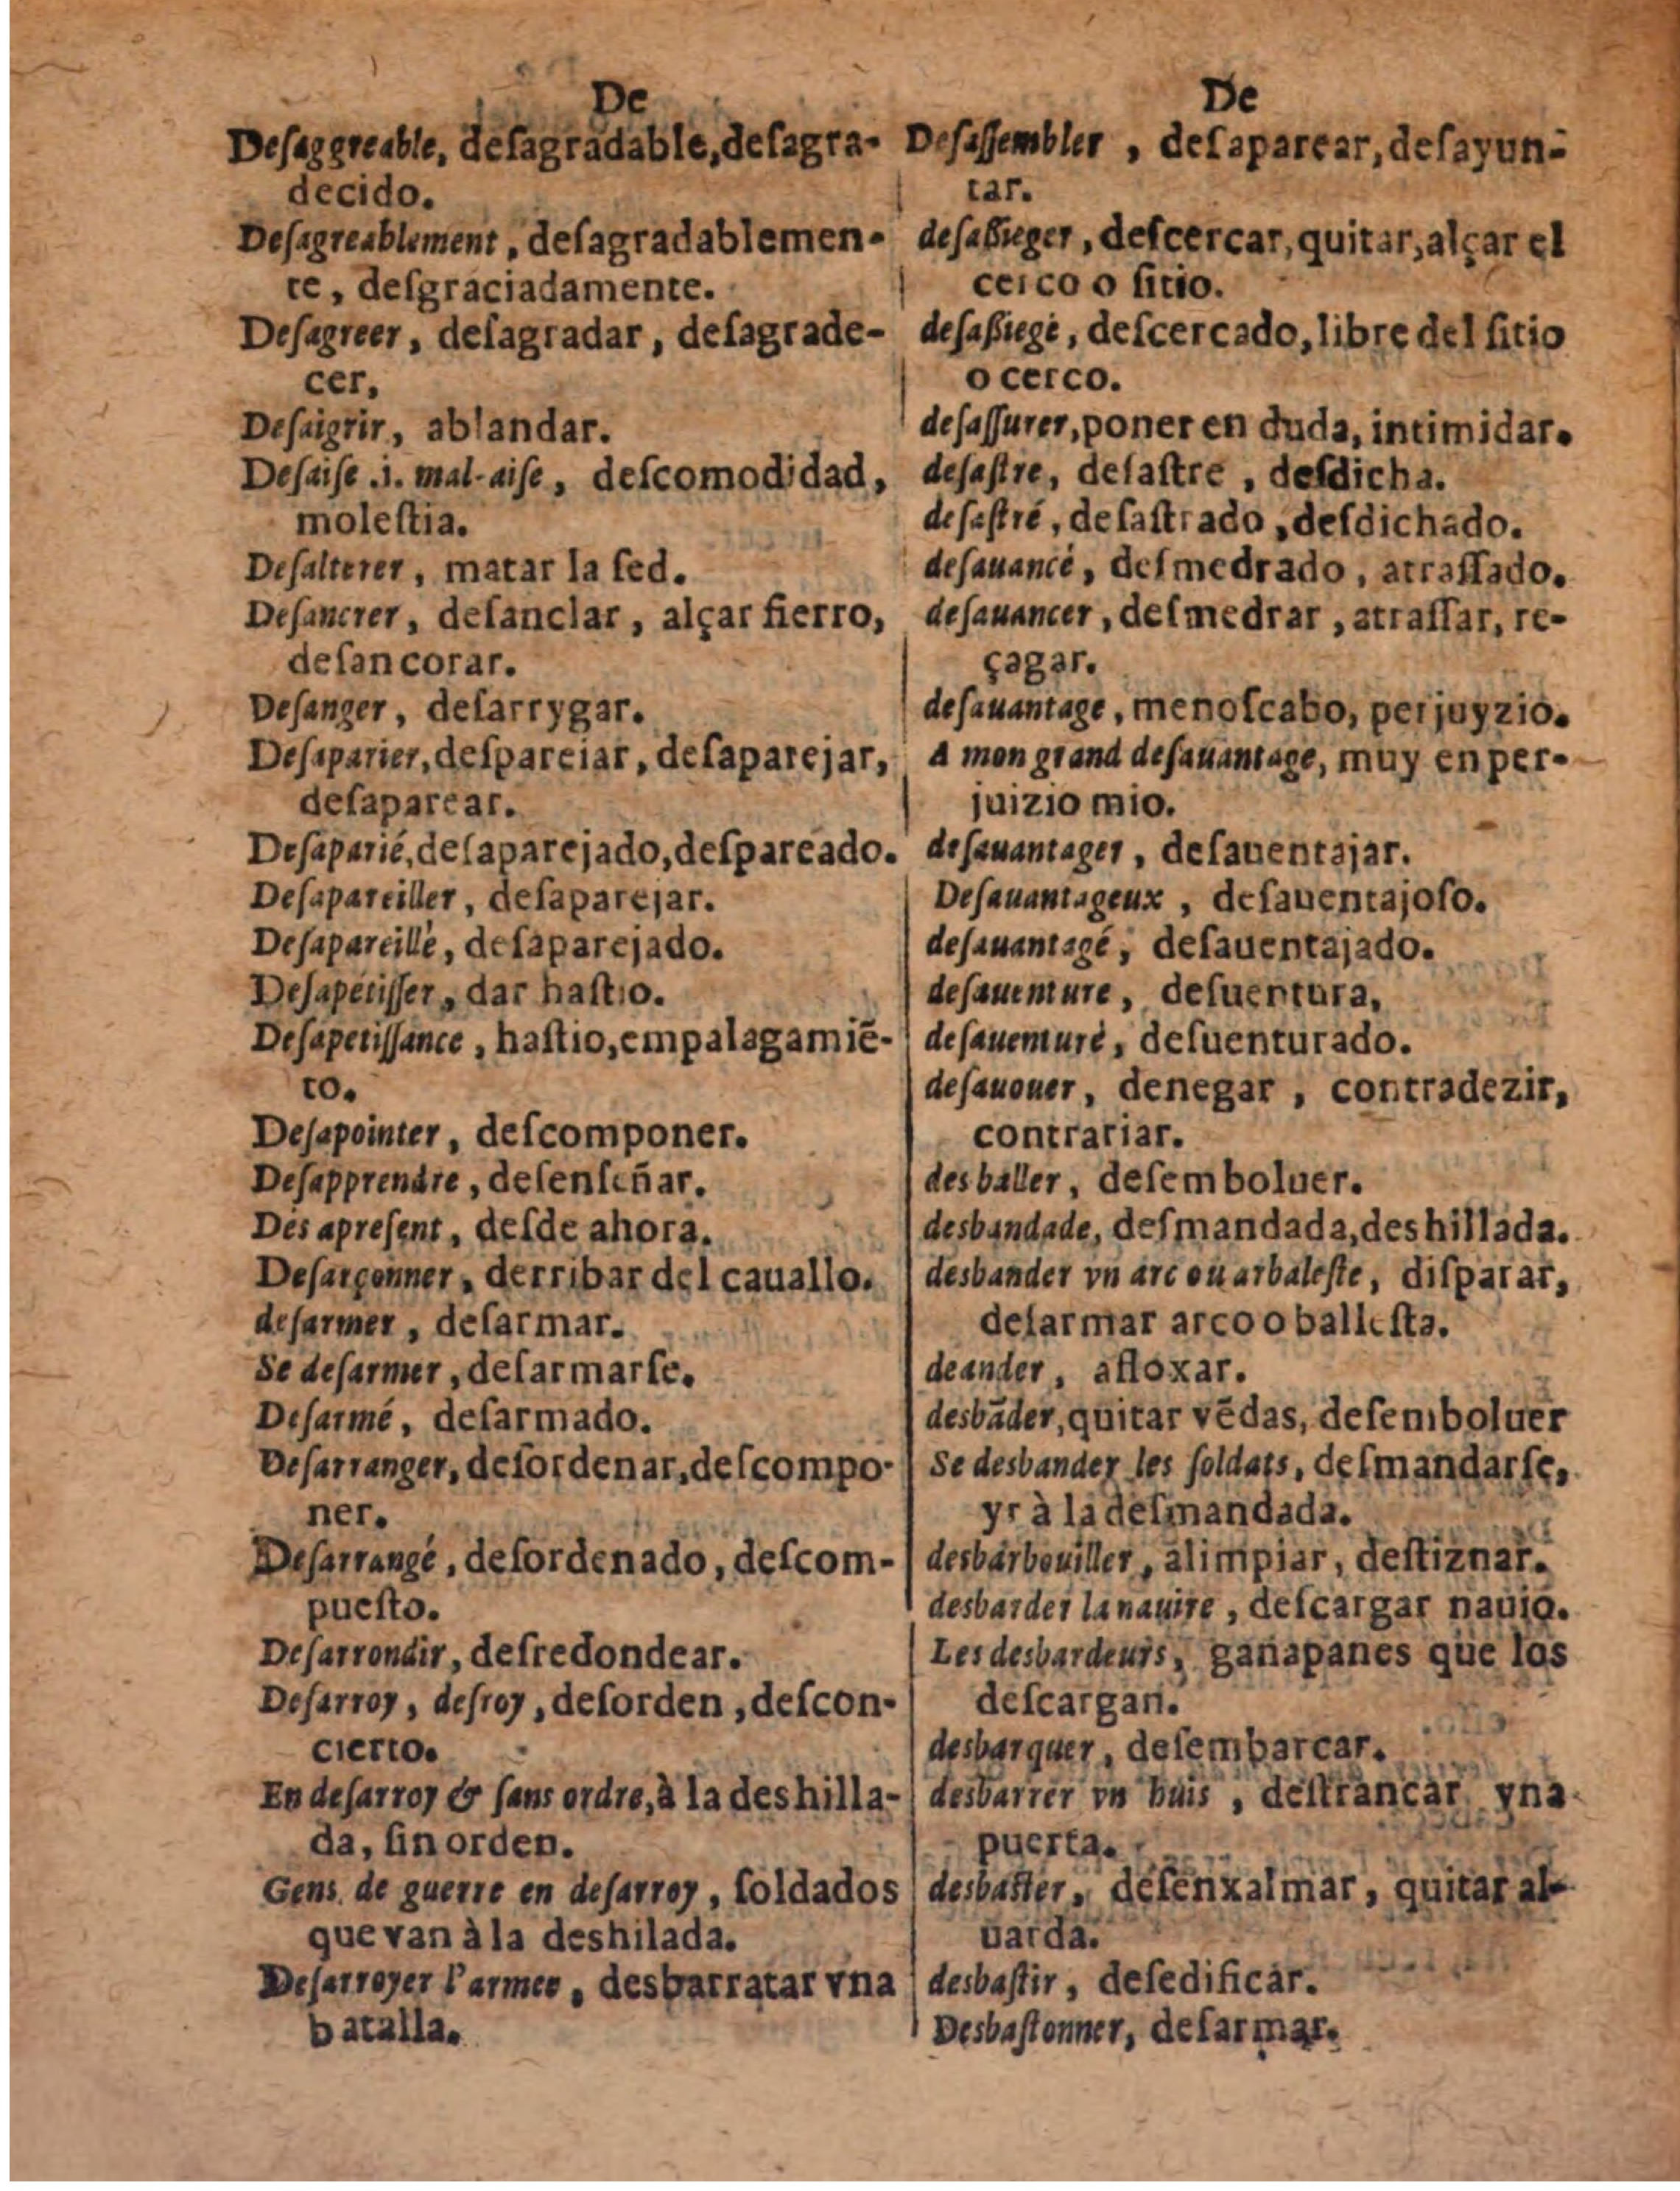 De
Deſaggreable, deſagradable, deſagra-
decido.
Deſagreablement, deſagradablemen-
te, deſgraciadamente.
Deſagreer, deſagradar, deſagrade-
cer,
Deſaigrir, ablandar.
Deſaiſe .i. mal-aiſe, deſcomodidad,
moleſtia.
Deſalterer, matar la ſed.
Deſancrer, deſanclar, alçar fierro,
deſancorar.
Deſanger, deſarrygar.
Deſaparier, deſpareiar, deſaparejar,
deſaparear.
Deſaparié, deſaparejado, deſpareado.
Deſapareiller, deſaparejar.
Deſapareillè, deſaparejado.
Deſapetiſſer, dar haſtio.
Deſapetiſſance, haſtio, empalagamiẽ-
to.
Deſapointer, deſcomponer.
Deſapprendre, deſenſeñar.
Des apreſent, deſde ahora.
Deſarçonner, derribar del cauallo.
deſarmer, deſarmar.
Se deſarmer, deſarmarſe.
Deſarmé, deſarmado.
Deſarranger, deſordenar, deſcompo-
ner.
Deſarrangé, deſordenado, deſcom-
pueſto.
Deſarrondir, deſredondear.
Deſarroy, deſroy, deſorden, deſcon-
cierto.
En deſarroy & ſans ordre, à la deshilla-
da, ſin orden.
Gens de guerre en deſarroy, ſoldados
que van à la deshilada.
Deſarroyer l'armee, desbarratar vna
batalla.
De
Deſaſſembler, deſaparear, deſayun-
tar.
deſaßieger, deſcercar, quitar, alçar el
cerco o ſitio.
deſaßiegé, deſcercado, libre del ſitio
o cerco.
deſaſſurer, poner en duda, intimidar.
deſaſtre, deſaſtre, deſdicha.
deſaſtré, deſaſtrado, deſdichado.
deſauancé, deſmedrado, atraſſado.
deſauancer, deſmedrar, atraſſar, re-
çagar.
deſauantage, menoſcabo, perjuyzio.
A mon grand deſauantage, muy en per-
juizio mio.
deſauantager, deſauentajar.
Deſauantageux, deſauentajoſo.
deſauantagé, deſauentajado.
deſauenture, deſuentura,
deſauenturé, deſuenturado.
deſauouer, denegar, contradezir,
contrariar.
desballer, deſemboluer.
desbandade, deſmandada, deshillada.
desbander vn arc ou arbaleſte, diſparar,
deſarmar arco o balleſta.
deander, afloxar.
desbãder, quitar vẽdas, deſemboluer
Se desbander les ſoldats, deſmandarſe,
yr à la deſmandada.
desbarbouiller, alimpiar, deſtiznar.
desbarder la nauire, deſcargar nauio.
Les desbardeurs, gañapanes que los
deſcargan.
desbarquer, deſembarcar.
desbarrer vn huis, deſtrancar vna
puerta.
desbaſter, deſenxalmar, quitar al-
uarda.
desbaſtir, deſedificar.
Desbaſtonner, deſarmar.